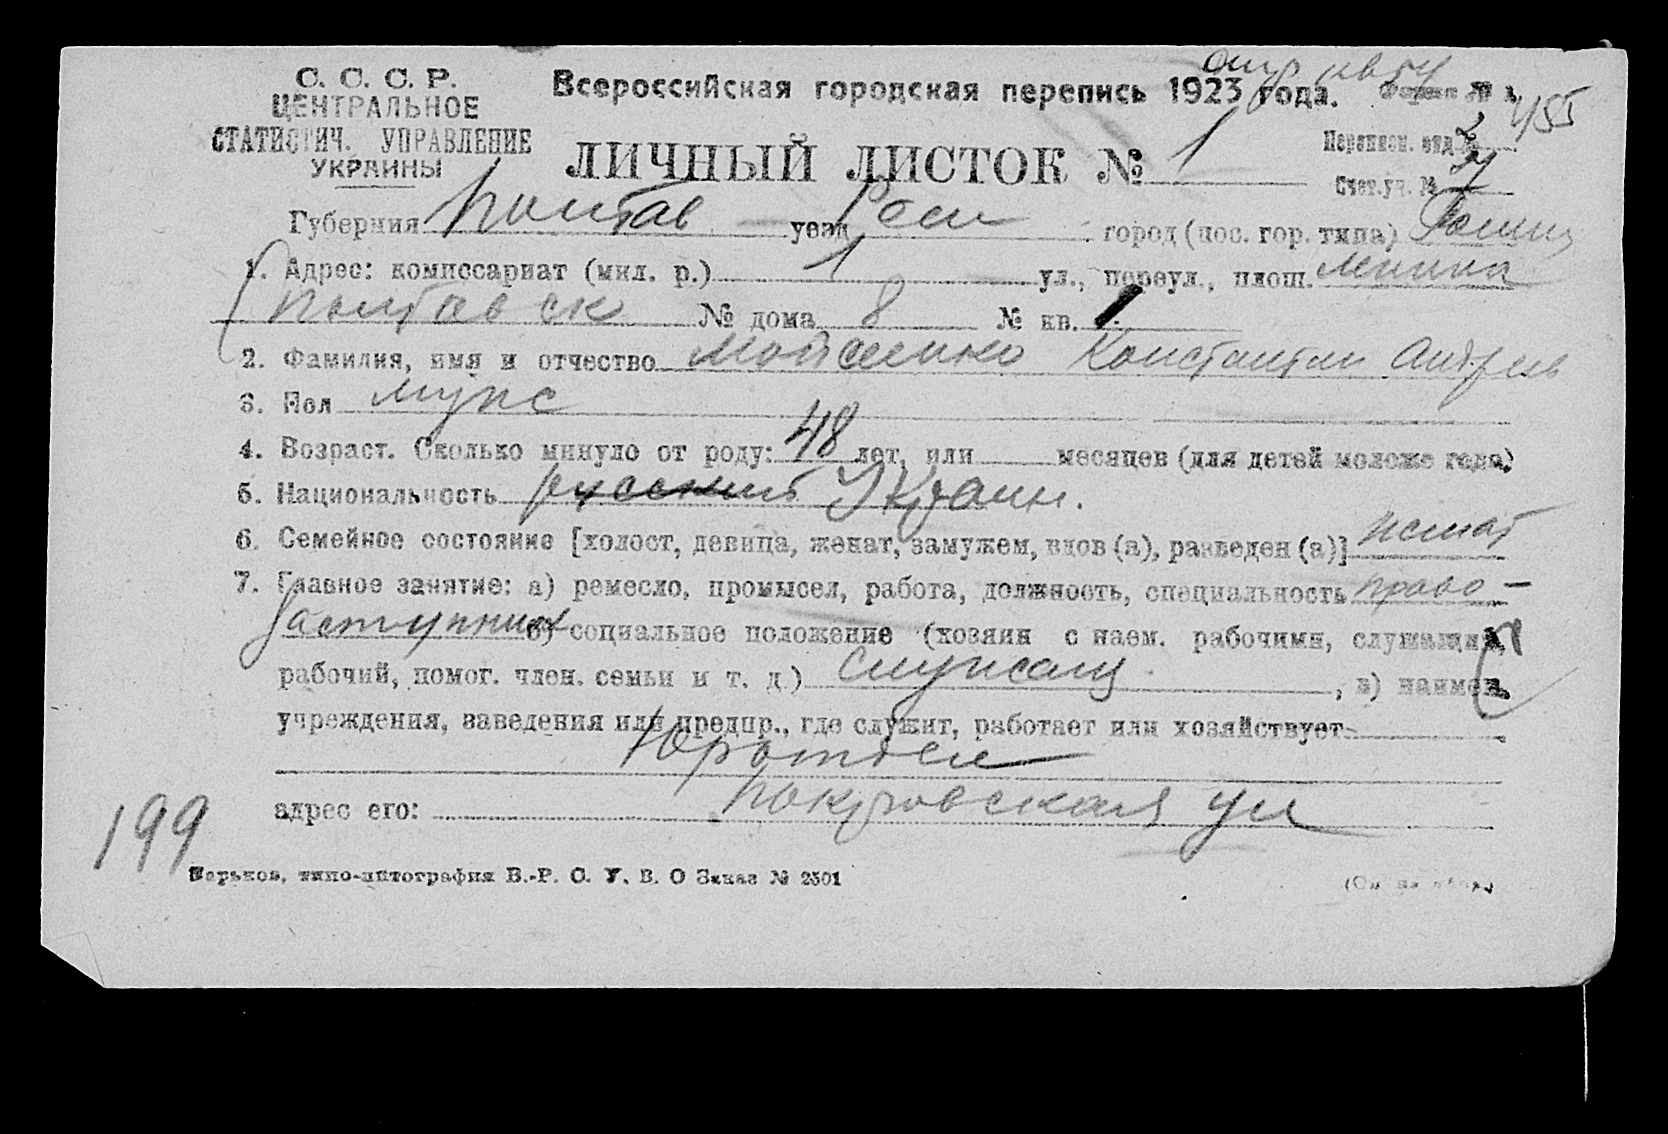 С. С. С. Р.
ЦЕНТРАЛЬНОЕ
СТАТИСТИЧ. УПРАВЛЕНИЕ
УКРАИНЫ
Всероссийская городская перепись 1923 года.
455
ЛИЧНЫЙ ЛИСТОК № 1
Переписн. отд. № 2
Счет. уч. №
Губерния Полтав уезд Ромн город (пос. гор. типа) Ромны
1. Адрес: комиссариат (мил. р.) 1 ул., переул., площ.
Полтавск № дома 8 № кв. 1
2. Фамилия, имя и отчество Мойсеенко Константин Андреев
3. Пол мужс
4. Возраст. Сколько минуло от роду: 48 лет, или месяцев (для детей моложе года)
5. Национальность русский Украин.
6. Семейное состояние [холост, девица, женат, замужем, вдов (а), разведен (а)] женат
7. Главное занятие: а) ремесло, промысел, работа, должность, специальность право-
заступник б) социальное положение (хозяин с наем. рабочими, служащий,
рабочий, помог. член. семьи и т. д.) служащ , в) наимен.
учреждения, заведения или предпр., где служит, работает или хозяйствует
Юротдел
адрес его: Покровская ул
199
Харьков, типо-литография В.-Р. С. У. В. О Заказ № 2301